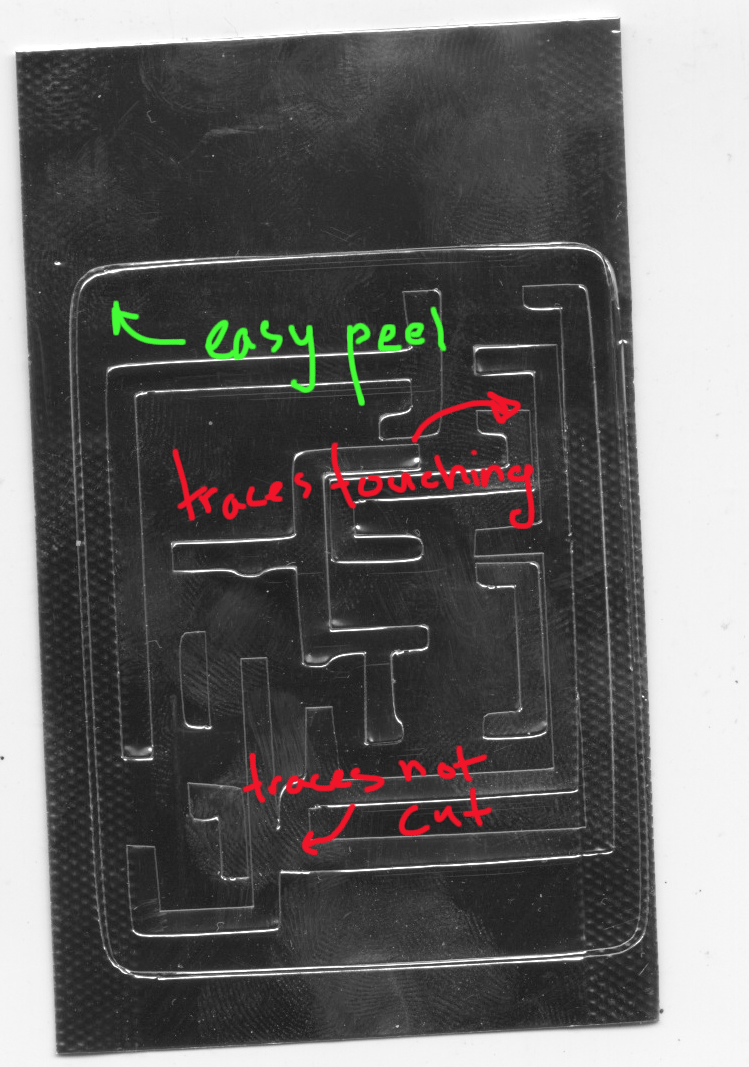 easy peel
traces touching
traces not
cut